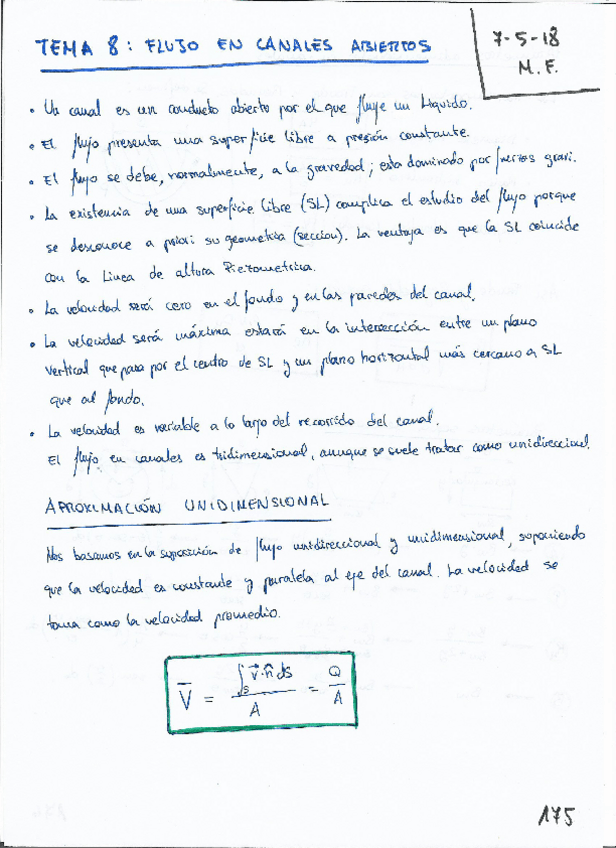 TEMA 8: FLUJO EN CANALES ABIERTOS
7-5-18
M.F.
• Un canal es un conducto abierto por el que fluye un Líquido.
• El flujo presenta una superficie libre a presión constante.
• El flujo se debe, normalmente, a la gravedad; esta dominado por fuerzas gravi.
• La existencia de una superficie libre (SL) complica el estudio del flujo porque
se desconoce a priori su geometria (seccion). La ventaja es que la SL coincide
con la Linea de altura Piezometrica.
• La velocidad será cero en el fondo y en las paredes del canal.
• La velocidad será máxima estará en la intersección entre un plano
vertical que pasa por el centro de SL y un plano horizontal más cercano a SL
que al fondo.
• La velocidad es variable a lo largo del recorrido del canal.
El flujo en canales es tridimensional, aunque se suele tratar como unidireccional.
APROXIMACIÓN UNIDIMENSIONAL
Nos basamos en la suposición de flujo unidireccional y unidimensional, suponiendo
que la velocidad es constante y paralela al eje del canal. La velocidad se
toma como la velocidad promedio.
V̅ = ∫s v⃗·n̂ ds / A = Q / A
175